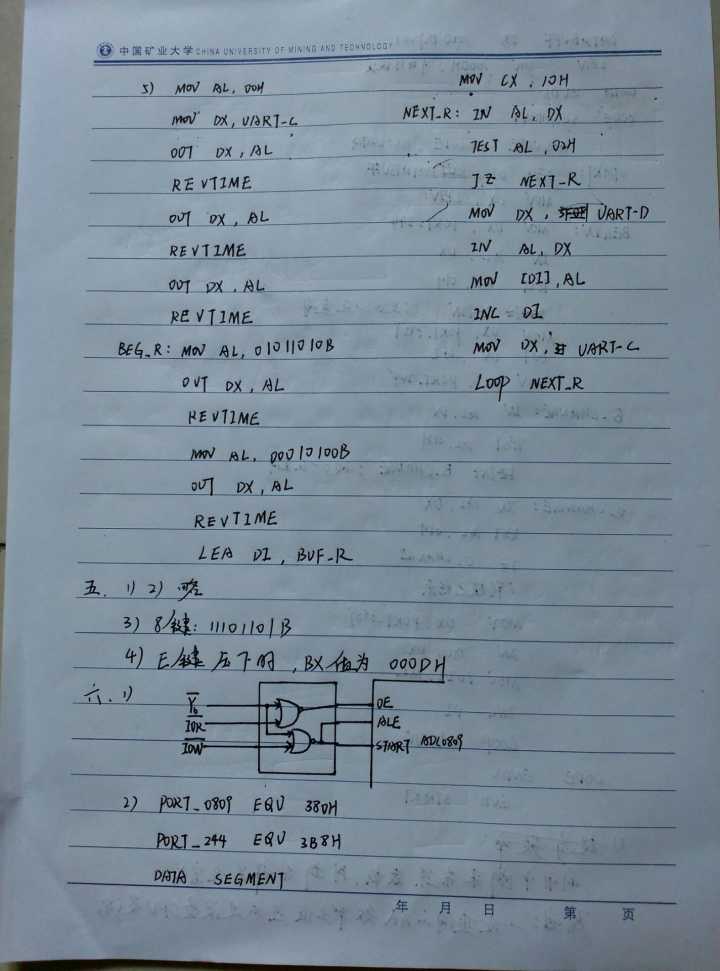 中国矿业大学 CHINA UNIVERSITY OF MINING AND TECHNOLOGY
5) MOV AL, 00H
MOV DX, UART-C
OUT DX, AL
REVTIME
OUT DX, AL
REVTIME
OUT DX, AL
REVTIME
BEG_R: MOV AL, 01011010B
OUT DX, AL
REVTIME
MOV AL, 00010100B
OUT DX, AL
REVTIME
LEA DI, BUF-R
MOV CX, 10H
NEXT_R: IN AL, DX
TEST AL, 02H
JZ NEXT-R
MOV DX, UART-D
IN AL, DX
MOV [DI], AL
INC DI
MOV DX, UART-C
LOOP NEXT_R
五. 1) 2) 略
3) 8键: 11101101B
4) E键压下时, BX值为 000DH
六. 1)
Y0
IOR
IOW
OE
ALE
START ADC0809
2) PORT_0809 EQU 380H
PORT_244 EQU 3B8H
DATA SEGMENT
年 月 日 第 页